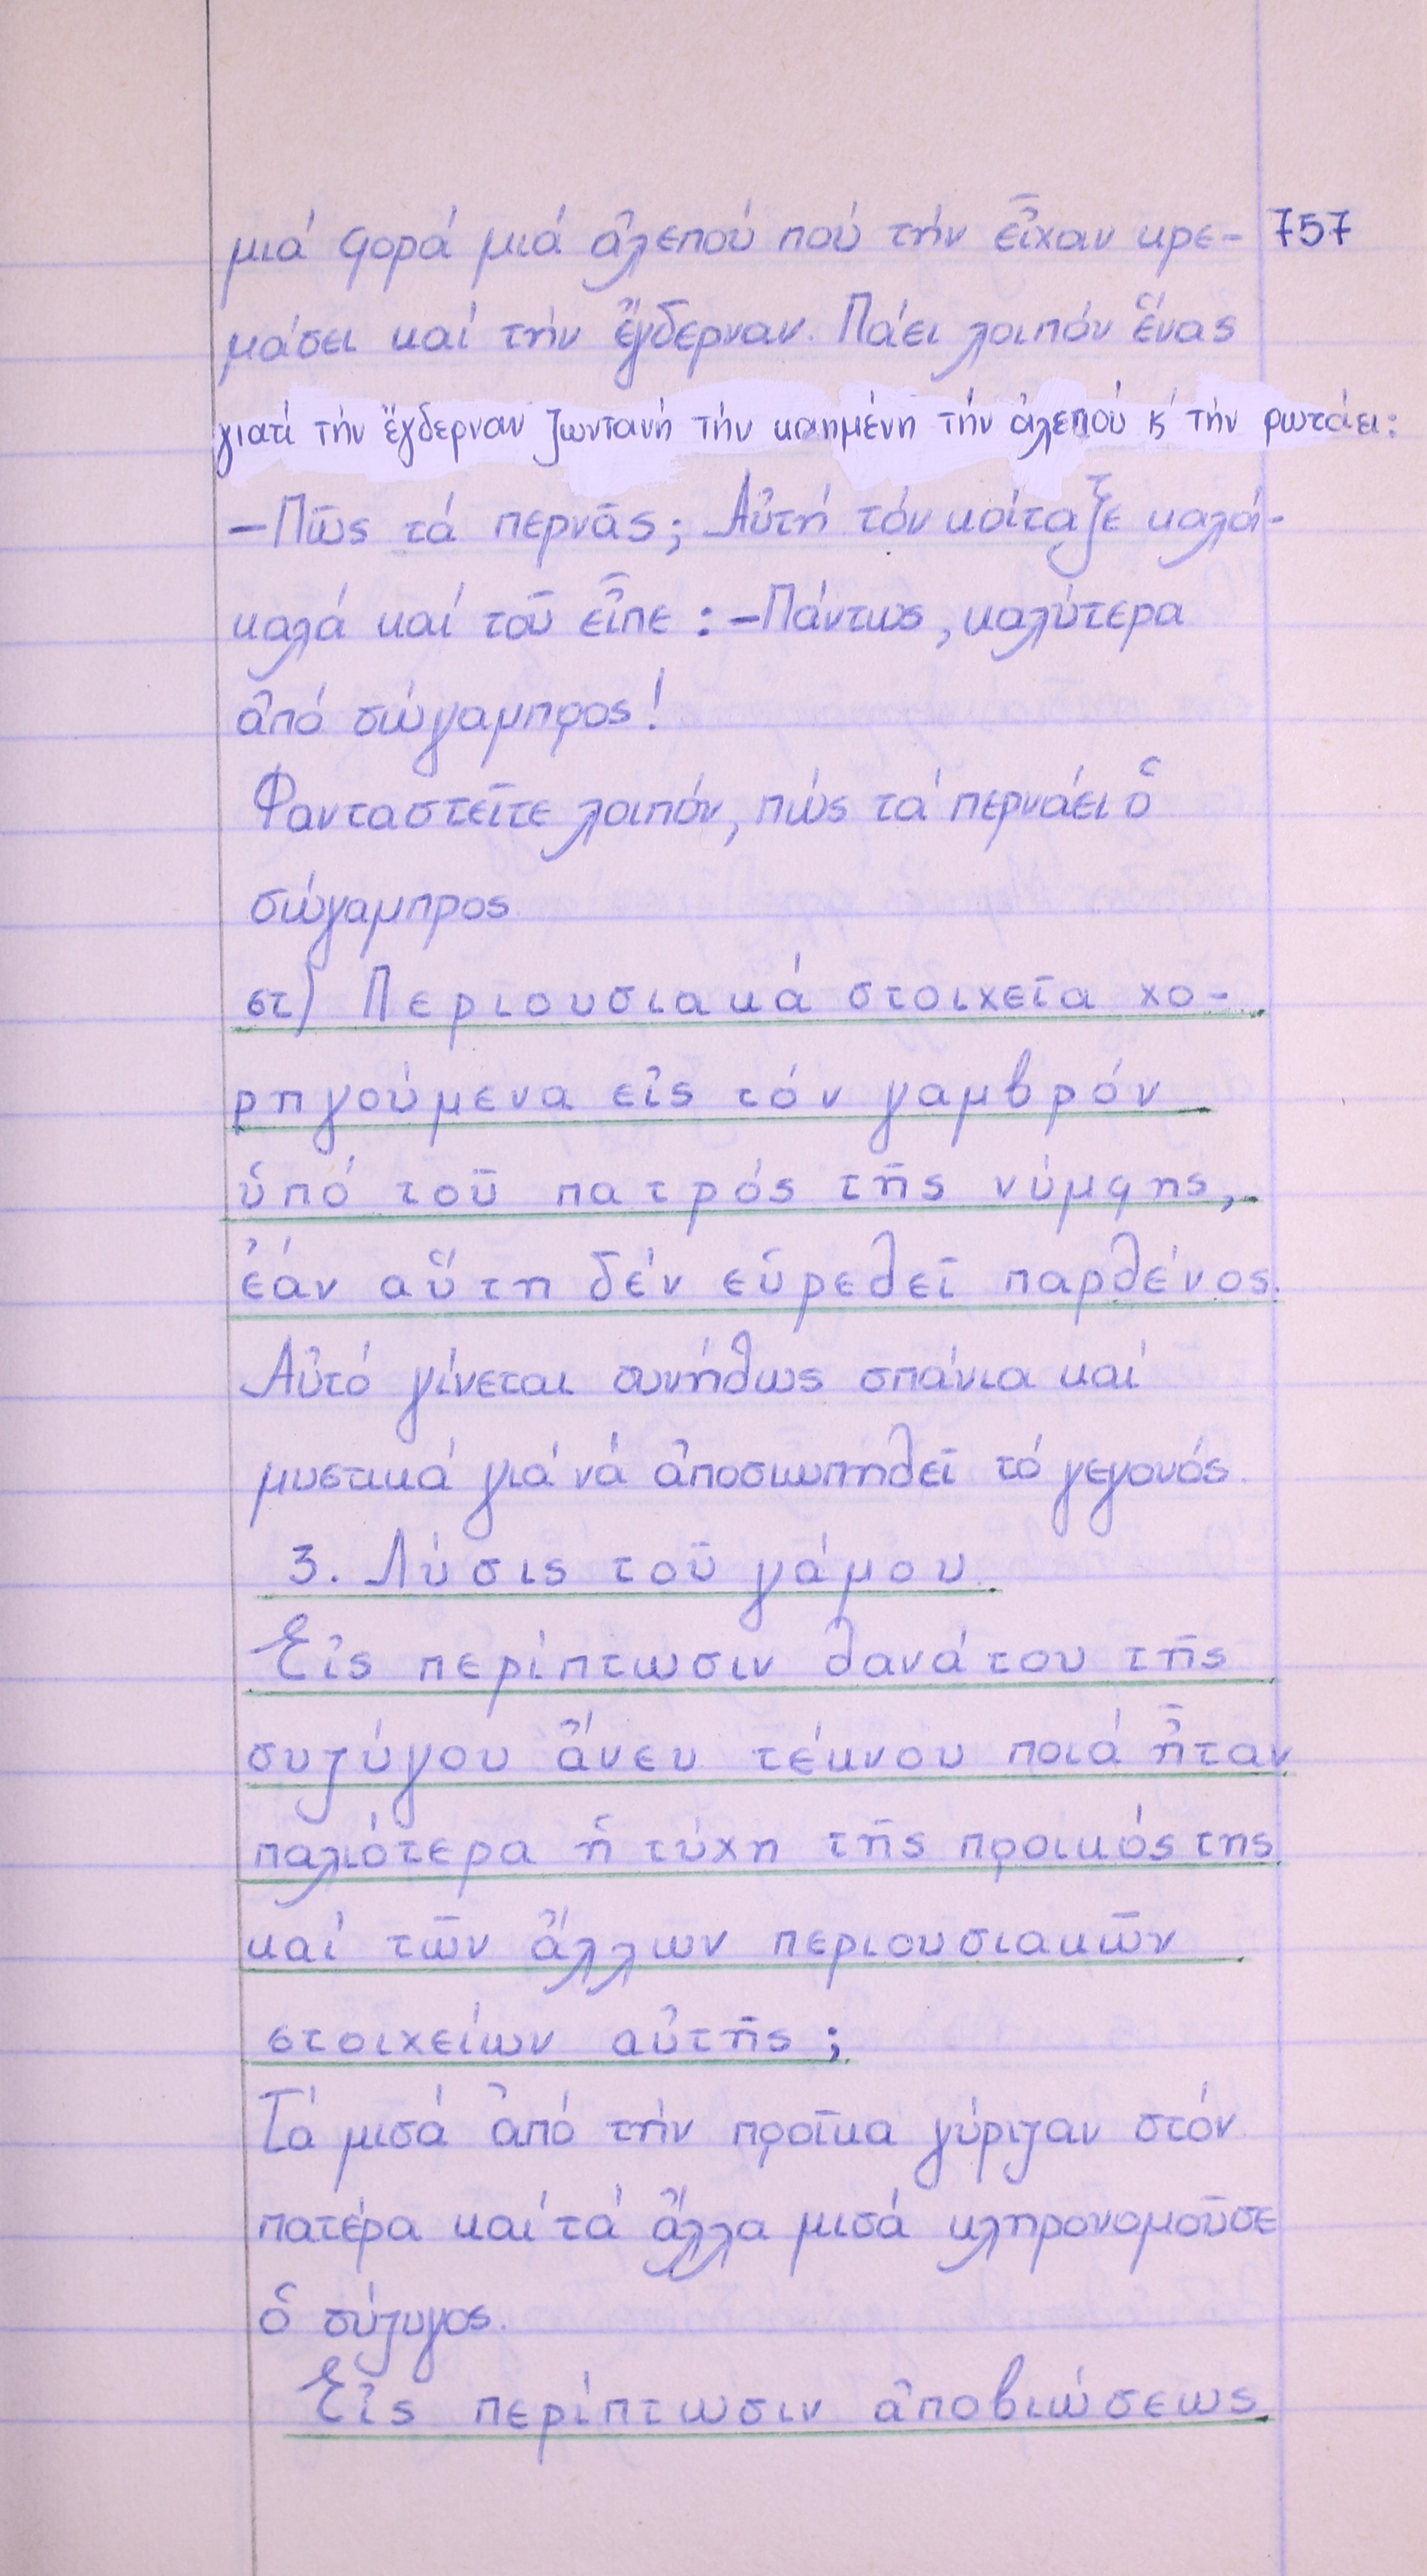 μιά φορά μιά ἀλεπού πού τήν εἶχαν κρε- 757
μάσει καί τήν ἔγδερναν. Πάει λοιπόν ἕνας
γιατί τήν ἔγδερναν ζωντανή τήν καημένη τήν ἀλεπού κ' τήν ρωτάει:
-Πῶς τά περνᾶς; Αὐτή τόν κοίταξε καλά-
καλά καί τοῦ εἶπε: -Πάντως, καλύτερα
ἀπό σώγαμπρος!
Φανταστεῖτε λοιπόν, πώς τά περνάει ὁ
σώγαμπρος.
στ) Περιουσιακά στοιχεῖα χο-
ρηγούμενα εἰς τόν γαμβρόν
ὑπό τοῦ πατρός τῆς νύμφης,
ἐάν αὕτη δέν εὑρεθεῖ παρθένος.
Αὐτό γίνεται συνήθως σπάνια καί
μυστικά γιά νά ἀποσιωπηθεῖ τό γεγονός.
3. Λύσις τοῦ γάμου.
Εἰς περίπτωσιν θανάτου τῆς
συζύγου ἄνευ τέκνου ποιά ἦταν
παλιότερα ἡ τύχη τῆς προικός της
καί τῶν ἄλλων περιουσιακῶν
στοιχείων αὐτῆς;
Τά μισά ἀπό τήν προῖκα γύριζαν στόν
πατέρα καί τά ἄλλα μισά κληρονομοῦσε
ὁ σύζυγος.
Εἰς περίπτωσιν ἀποβιώσεως